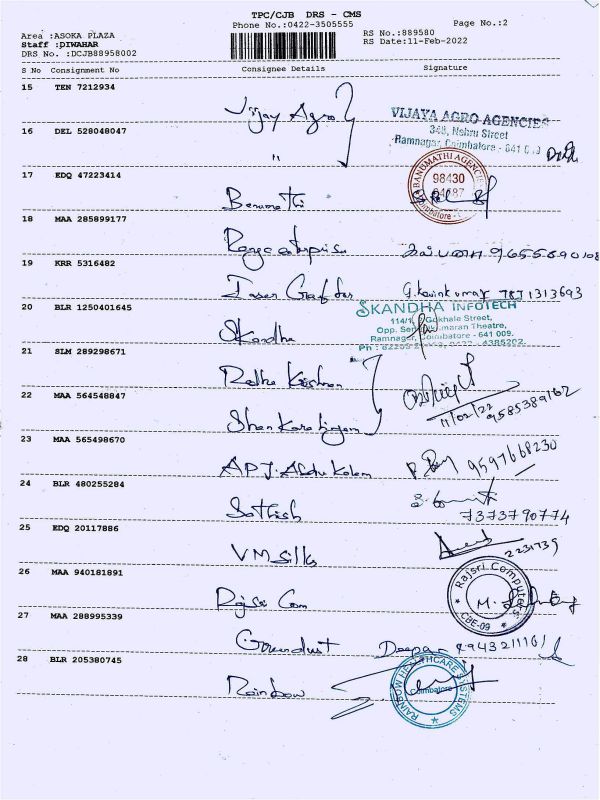 TPC/CJB DRS - CMS
Phone No.:0422-3505555
Page No.:2
Area :ASOKA PLAZA
Staff :DIWAHAR
DRS No. :DCJB88958002
RS No.:889580
RS Date:11-Feb-2022
S No Consignment No Consignee Details Signature
15 TEN 7212934 Vijay Agro
VIJAYA AGRO AGENCIES
348, Nehru Street
Ramnagar, Coimbatore - 641 0
16 DEL 528048047 "
17 EDQ 47223414
BANUMATHI AGENCIES
98430
Coimbatore
18 MAA 285899177
19 KRR 5316482 7871313693
20 BLR 1250401645 Skandha
SKANDHA INFOTECH
114/1, Gokhale Street,
Opp. Theatre,
Ramnagar, Coimbatore - 641 009.
Ph : 4385202
21 SLM 289298671 Radha Krishnan
22 MAA 564548847 Shankaralingam
11/02/22
9585389162
23 MAA 565498670 APJ. Abdul Kalam 9597668230
24 BLR 480255284 Sathish
7373790774
25 EDQ 20117886 VM Silks
2231739
26 MAA 940181891 Rajsri Com
Rajsri Computers
CBE-09
27 MAA 288995339 Deepa
28 BLR 205380745 Rainbow
RAINBOW HEALTHCARE SYSTEMS
Coimbatore